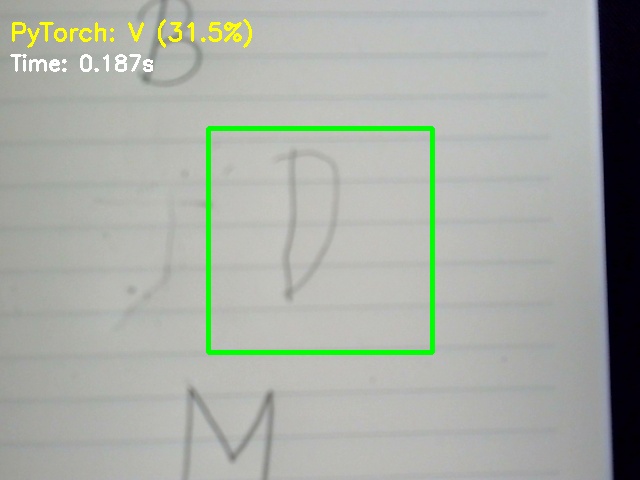 PyTorch: V (31.5%)
Time: 0.187s
B
J D
M